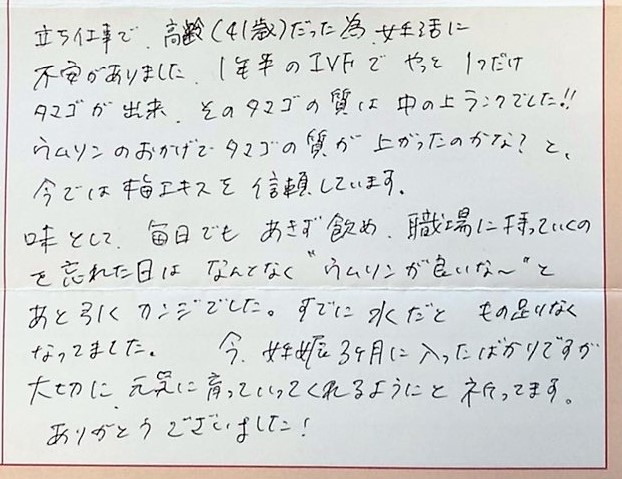 立ち仕事で、高齢(41歳)だった為、妊活に
不安がありました。1年半のIVFで やっと 1つだけ
タマゴが出来、そのタマゴの質は中の上ランクでした!!
ウムリンのおかげでタマゴの質が上がったのかな?と、
今では梅エキスを信頼しています。
味として、毎日でも あきず飲め、職場に持っていくの
を忘れた日は なんとなく"ウムリンが良いな〜"と
あと引くカンジでした。すでに水だと もの足りなく
なってました。 今、妊娠3ヶ月に入ったばかりですが
大切に、元気に育っていってくれるようにと 祈ってます。
ありがとうございました!